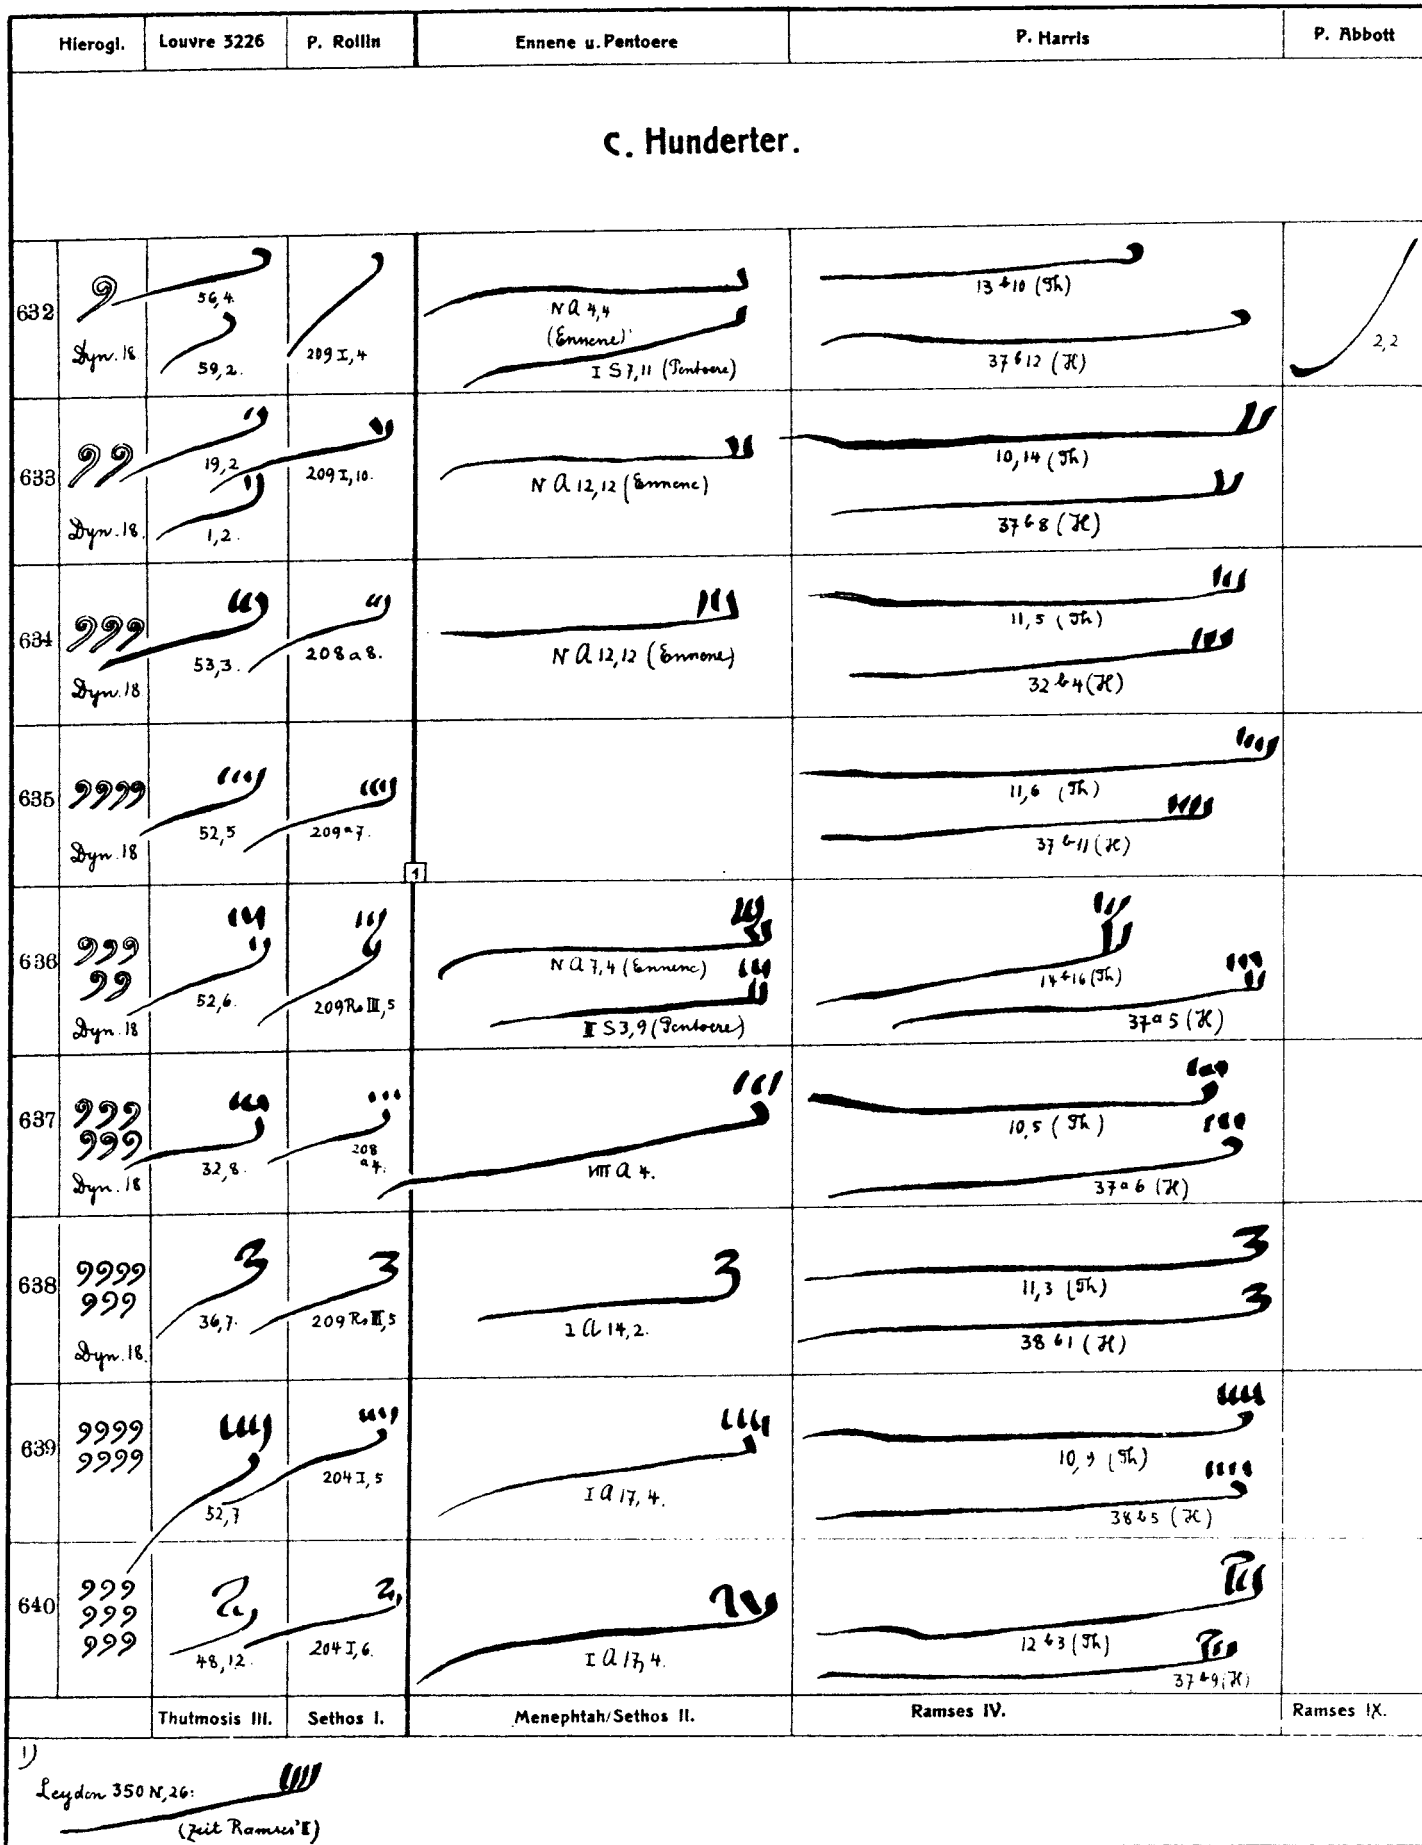 Hierogl. Louvre 3226 P. Rollin Ennene u. Pentoere P. Harris P. Abbott
C. Hunderter.
632 𓍢 Dyn. 18 56,4. 59,2. 209 I, 4 N A 4,4 (Ennene) I S 7,11 (Pentoere) 13 b 10 (Th) 37 b 12 (H) 2,2
633 𓍢𓍢 Dyn. 18. 19,2 1,2. 209 I, 10. N A 12,12 (Ennene) 10,14 (Th) 37 b 8 (H)
634 𓍢𓍢𓍢 Dyn. 18 53,3. 208 a 8. N A 12,12 (Ennene) 11,5 (Th) 32 b 4 (H)
635 𓍢𓍢𓍢𓍢 Dyn. 18 52,5 209 a 7. 11,6 (Th) 37 b 11 (H)
1
636 𓍢𓍢𓍢 𓍢𓍢 Dyn. 18 52,6. 209 Ro III, 5 N A 7,4 (Ennene) II S 3,9 (Pentoere) 14 b 16 (Th) 37 a 5 (H)
637 𓍢𓍢𓍢 𓍢𓍢𓍢 Dyn. 18 32,8. 208 a 4. VIII A 4. 10,5 (Th) 37 a 6 (H)
638 𓍢𓍢𓍢𓍢 𓍢𓍢𓍢 Dyn. 18. 36,7. 209 Ro III, 5 2 A 14,2. 11,3 (Th) 38 b 1 (H)
639 𓍢𓍢𓍢𓍢 𓍢𓍢𓍢𓍢 52,7 204 I, 5 I A 17, 4. 10,9 (Th) 38 b 5 (H)
640 𓍢𓍢𓍢 𓍢𓍢𓍢 𓍢𓍢𓍢 48,12. 204 I, 6. I A 17, 4. 12 b 3 (Th) 37 b 9 (H)
Thutmosis III. Sethos I. Menephtah/Sethos II. Ramses IV. Ramses IX.
1)
Leyden 350 N, 26:
(Zeit Ramses' II)